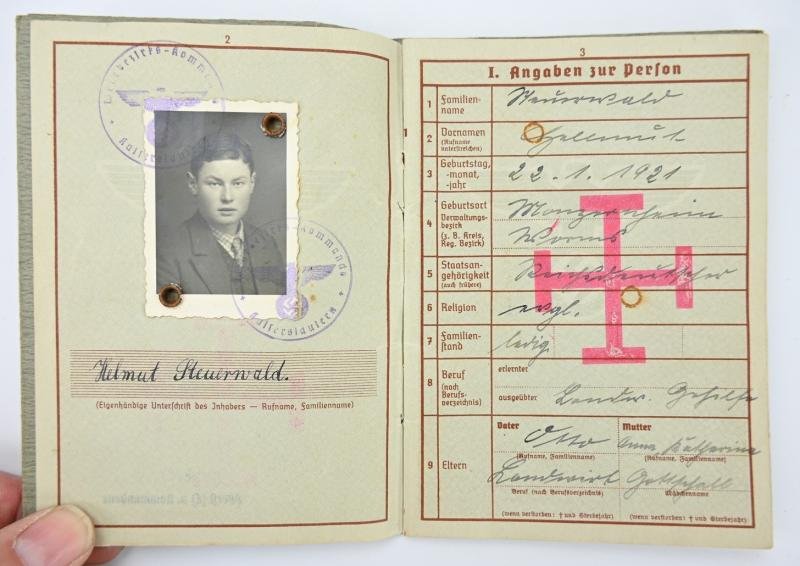 2
Wehrbezirks-Kommando
Kaiserslautern
Wehrbezirks-Kommando
Kaiserslautern
Helmut Steuerwald.
(Eigenhändige Unterschrift des Inhabers — Rufname, Familienname)
3
I. Angaben zur Person
1 Familienname Steuerwald
2 Vornamen (Rufname unterstreichen) Hellmut
3 Geburtstag, -monat, -jahr 22. 1. 1921
4 Geburtsort Monzernheim
Verwaltungsbezirk (z. B. Kreis, Reg. Bezirk) Worms
5 Staatsangehörigkeit (auch frühere) Reichsdeutscher
6 Religion evgl.
7 Familienstand ledig
8 Beruf (nach Berufsverzeichnis) erlernter
ausgeübter Landw. Gehilfe
9 Eltern
Vater Otto
(Rufname, Familienname)
Landwirt
Beruf (nach Berufsverzeichnis)
(wenn verstorben: † und Sterbejahr)
Mutter Anna Katharina
(Rufname, Familienname)
Gottschall
Mädchenname
(wenn verstorben: † und Sterbejahr)